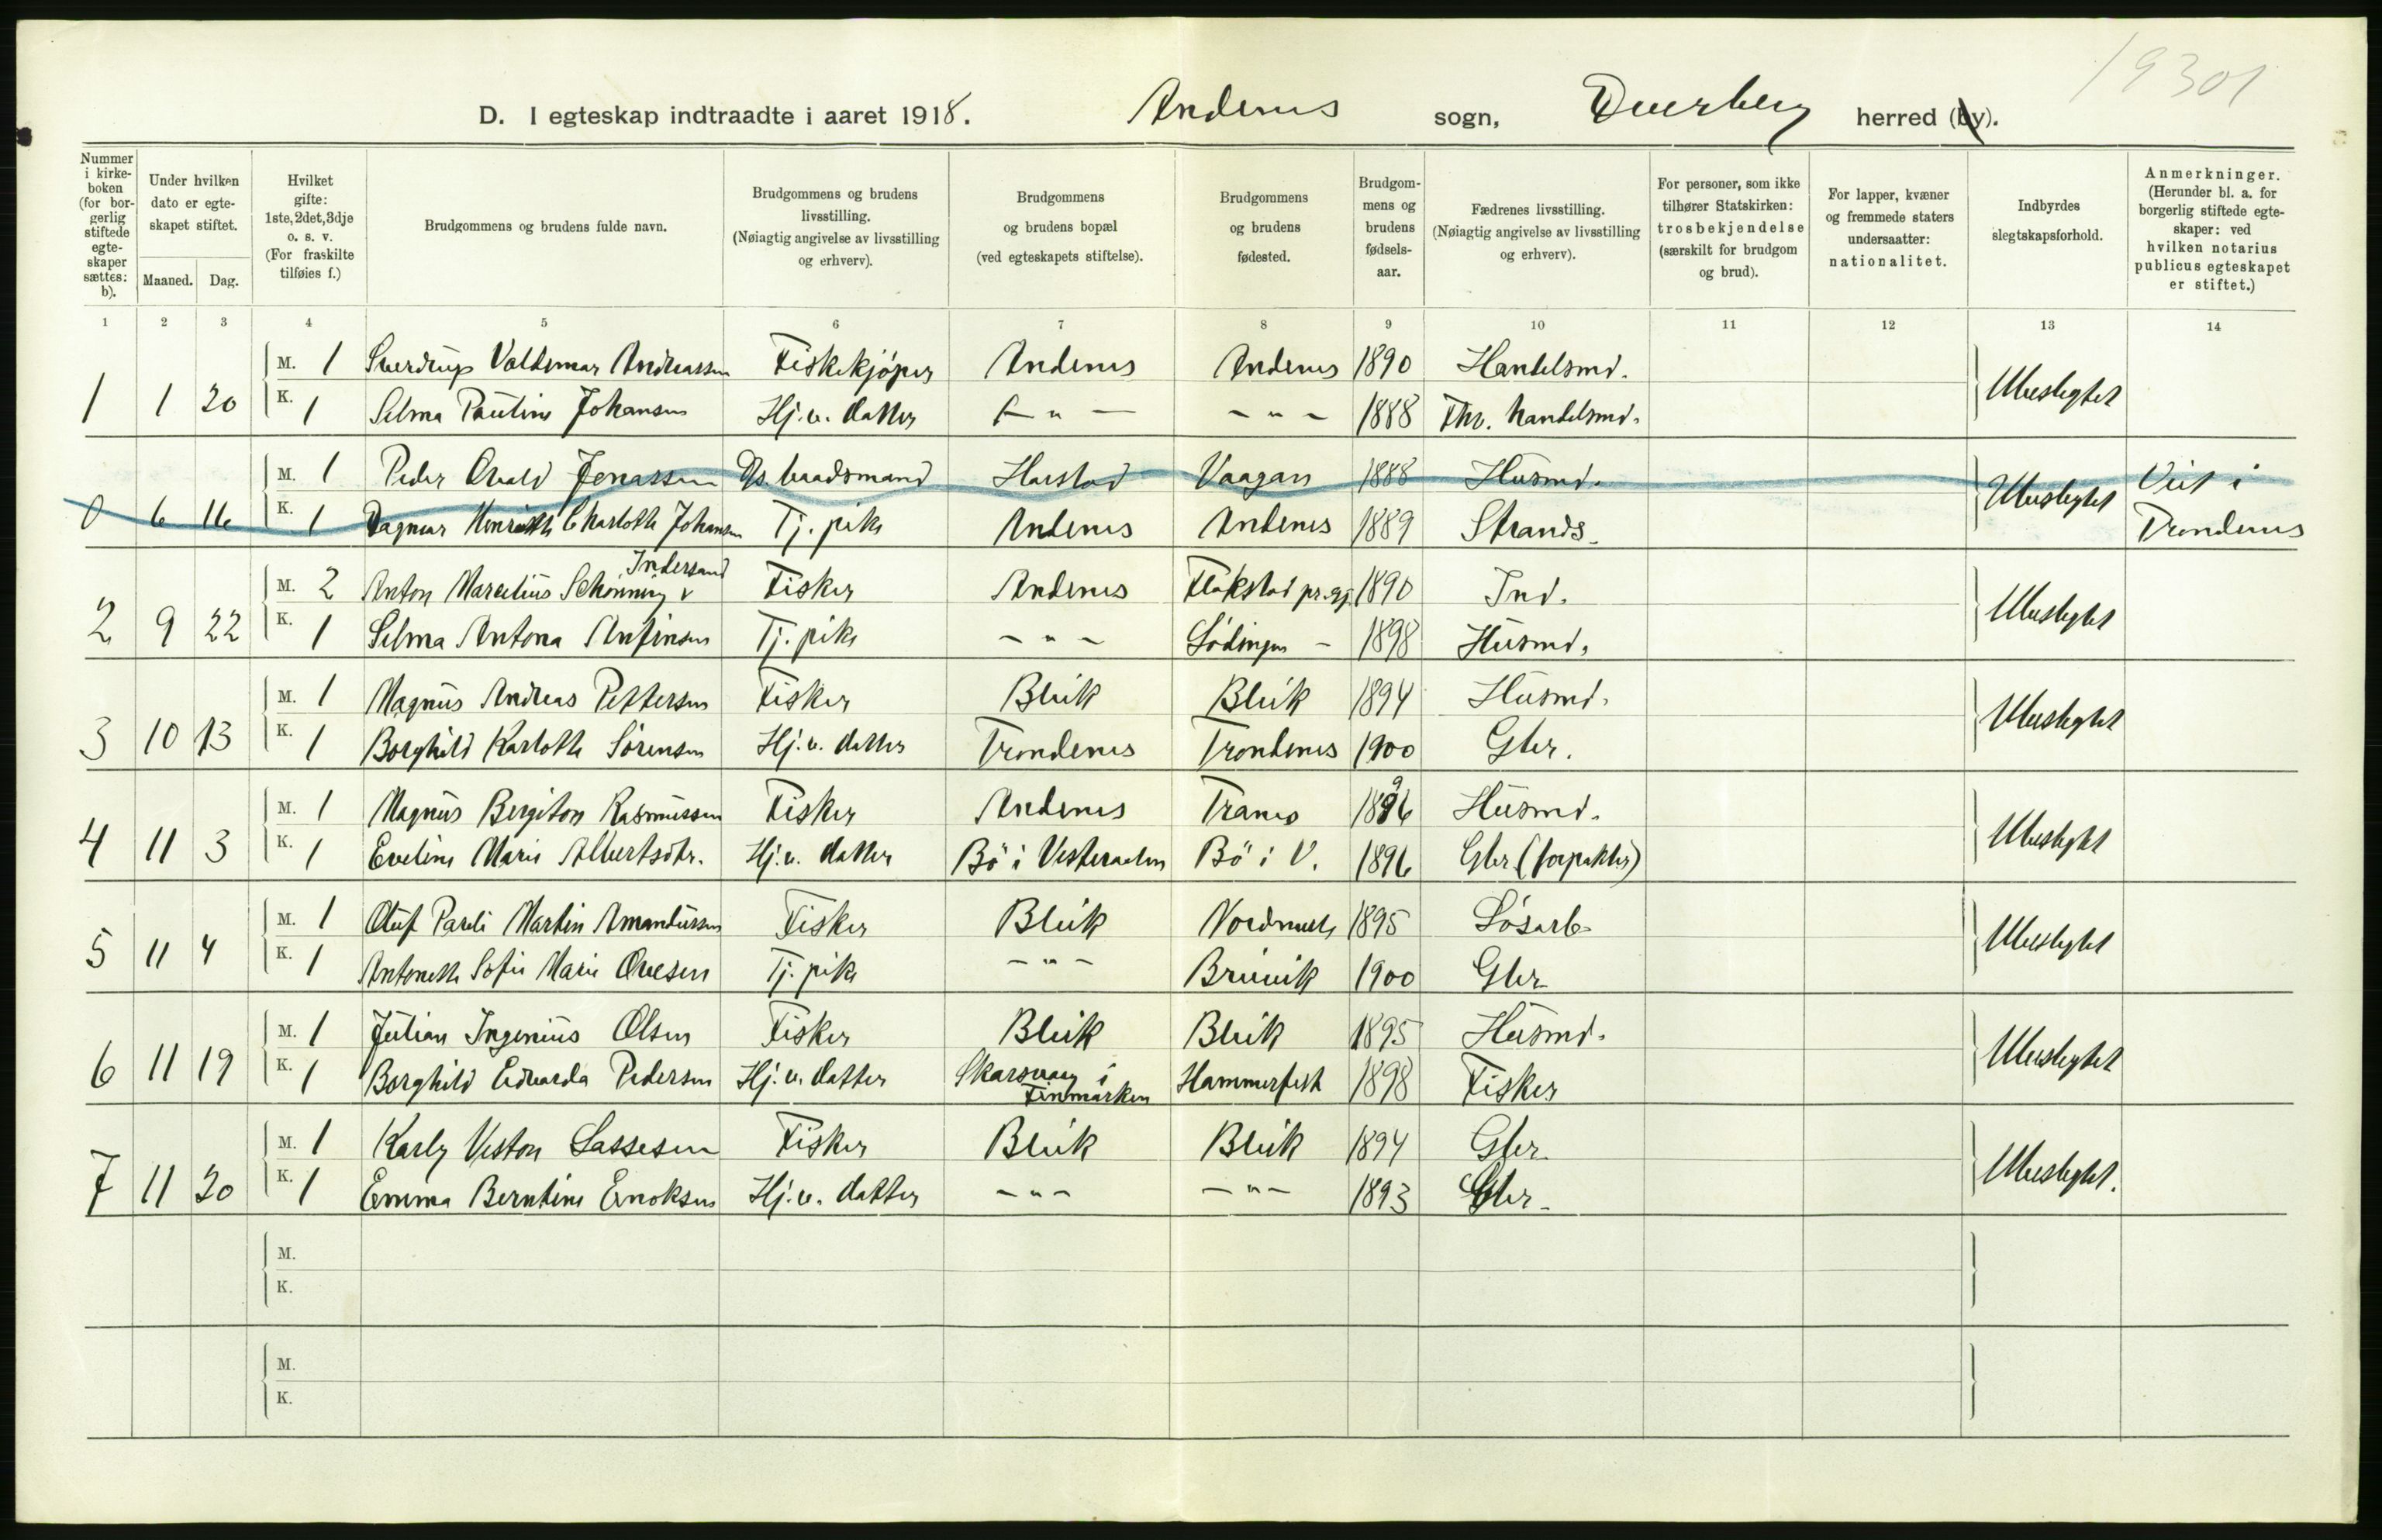 19301
D. I egteskap indtraadte i aaret 1918. Andenes sogn, Dverberg herred (by).
Nummer i kirkeboken (for borgerlig stiftede egteskaper sættes: b).
Under hvilken dato er egteskapet stiftet.
Maaned. Dag.
Hvilket gifte: 1ste, 2det, 3dje o. s. v. (For fraskilte tilføies f.)
Brudgommens og brudens fulde navn.
Brudgommens og brudens livsstilling. (Nøiagtig angivelse av livsstilling og erhverv).
Brudgommens og brudens bopæl (ved egteskapets stiftelse).
Brudgommens og brudens fødested.
Brudgommens og brudens fødselsaar.
Fædrenes livsstilling. (Nøiagtig angivelse av livsstilling og erhverv).
For personer, som ikke tilhører Statskirken: trosbekjendelse (særskilt for brudgom og brud).
For lapper, kvæner og fremmede staters undersaatter: nationalitet.
Indbyrdes slegtskapsforhold.
Anmerkninger. (Herunder bl. a. for borgerlig stiftede egteskaper: ved hvilken notarius publicus egteskapet er stiftet.)
1 2 3 4 5 6 7 8 9 10 11 12 13 14
M. 1 Sverdrup Valdemar Andreassen Fiskekjøper Andenes Andenes 1890 Handelsmd.
1 1 20 Ubeslegtet
K. 1 Selma Pauline Johansen Hj.v. datter — " — — " — 1888 Fhv. handelsmd.
M. 1 Peder Osvald Jenassen Ds. baadsmand Harstad Vaagan 1888 Husmd.
0 6 16 Ubeslegtet Viet i Trondenes
K. 1 Dagmar Henriette Charlotte Johansen Tj. pike Andenes Andenes 1889 Strands.
M. 2 Anton Marcelius Schønning v Indersand Fisker Andenes Flakstad pr.gj. 1890 Ind.
2 9 22 Ubeslegtet
K. 1 Selma Antona Anfinsen Tj. pike — " — Lødingen — 1898 Husmd.
M. 1 Magnus Andreas Pettersen Fisker Bleik Bleik 1894 Husmd.
3 10 13 Ubeslegtet
K. 1 Borghild Karlotte Sørensen Hj.v. datter Trondenes Trondenes 1900 Gbr.
M. 1 Magnus Bergiton Rasmussen Fisker Andenes Tranø 1896 Husmd.
4 11 3 Ubeslegtet
K. 1 Eveline Marie Albertsdtr. Hj.v. datter Bö i Vesteraalen Bö i V. 1896 Gbr (forpakter)
M. 1 Oluf Pareli Martin Amandussen Fisker Bleik Nordmela 1895 Løsarb.
5 11 4 Ubeslegtet
K. 1 Antonette Sofie Marie Ovesen Tj. pike — " — Breivik 1900 Gbr
M. 1 Julian Ingenius Olsen Fisker Bleik Bleik 1895 Husmd.
6 11 19 Ubeslegtet
K. 1 Borghild Edvarda Pedersen Hj.v. datter Skarsvaag i Finmarken Hammerfest 1898 Fisker
M. 1 Karly Veston Lassesen Fisker Bleik Bleik 1894 Gbr
7 11 20 Ubeslegtet.
K. 1 Emma Berntine Enoksen Hj.v. datter — " — — " — 1893 Gbr
M.
K.
M.
K.